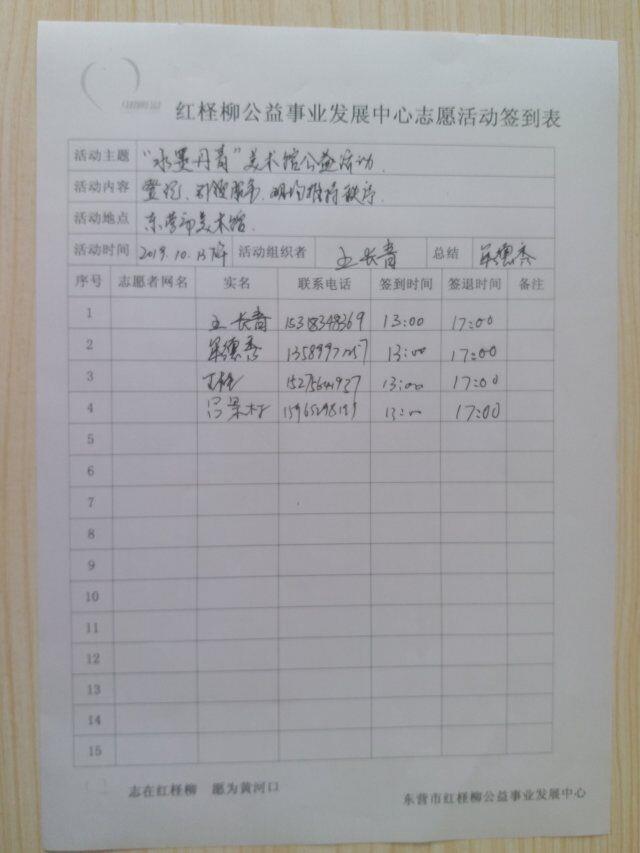 红柽柳公益事业发展中心志愿活动签到表
活动主题 "水墨丹青"美术馆公益活动.
活动内容 登记、引领服务、场内维持秩序.
活动地点 东营市美术馆.
活动时间 2019.10.13 活动组织者 王长青 总结
序号 志愿者网名 实名 联系电话 签到时间 签退时间 备注
1 王长青 15318348369 13:00 17:00
2 13:00 17:00
3 13:00 17:00
4 13:00 17:00
5
6
7
8
9
10
11
12
13
14
15
志在红柽柳 愿为黄河口
东营市红柽柳公益事业发展中心